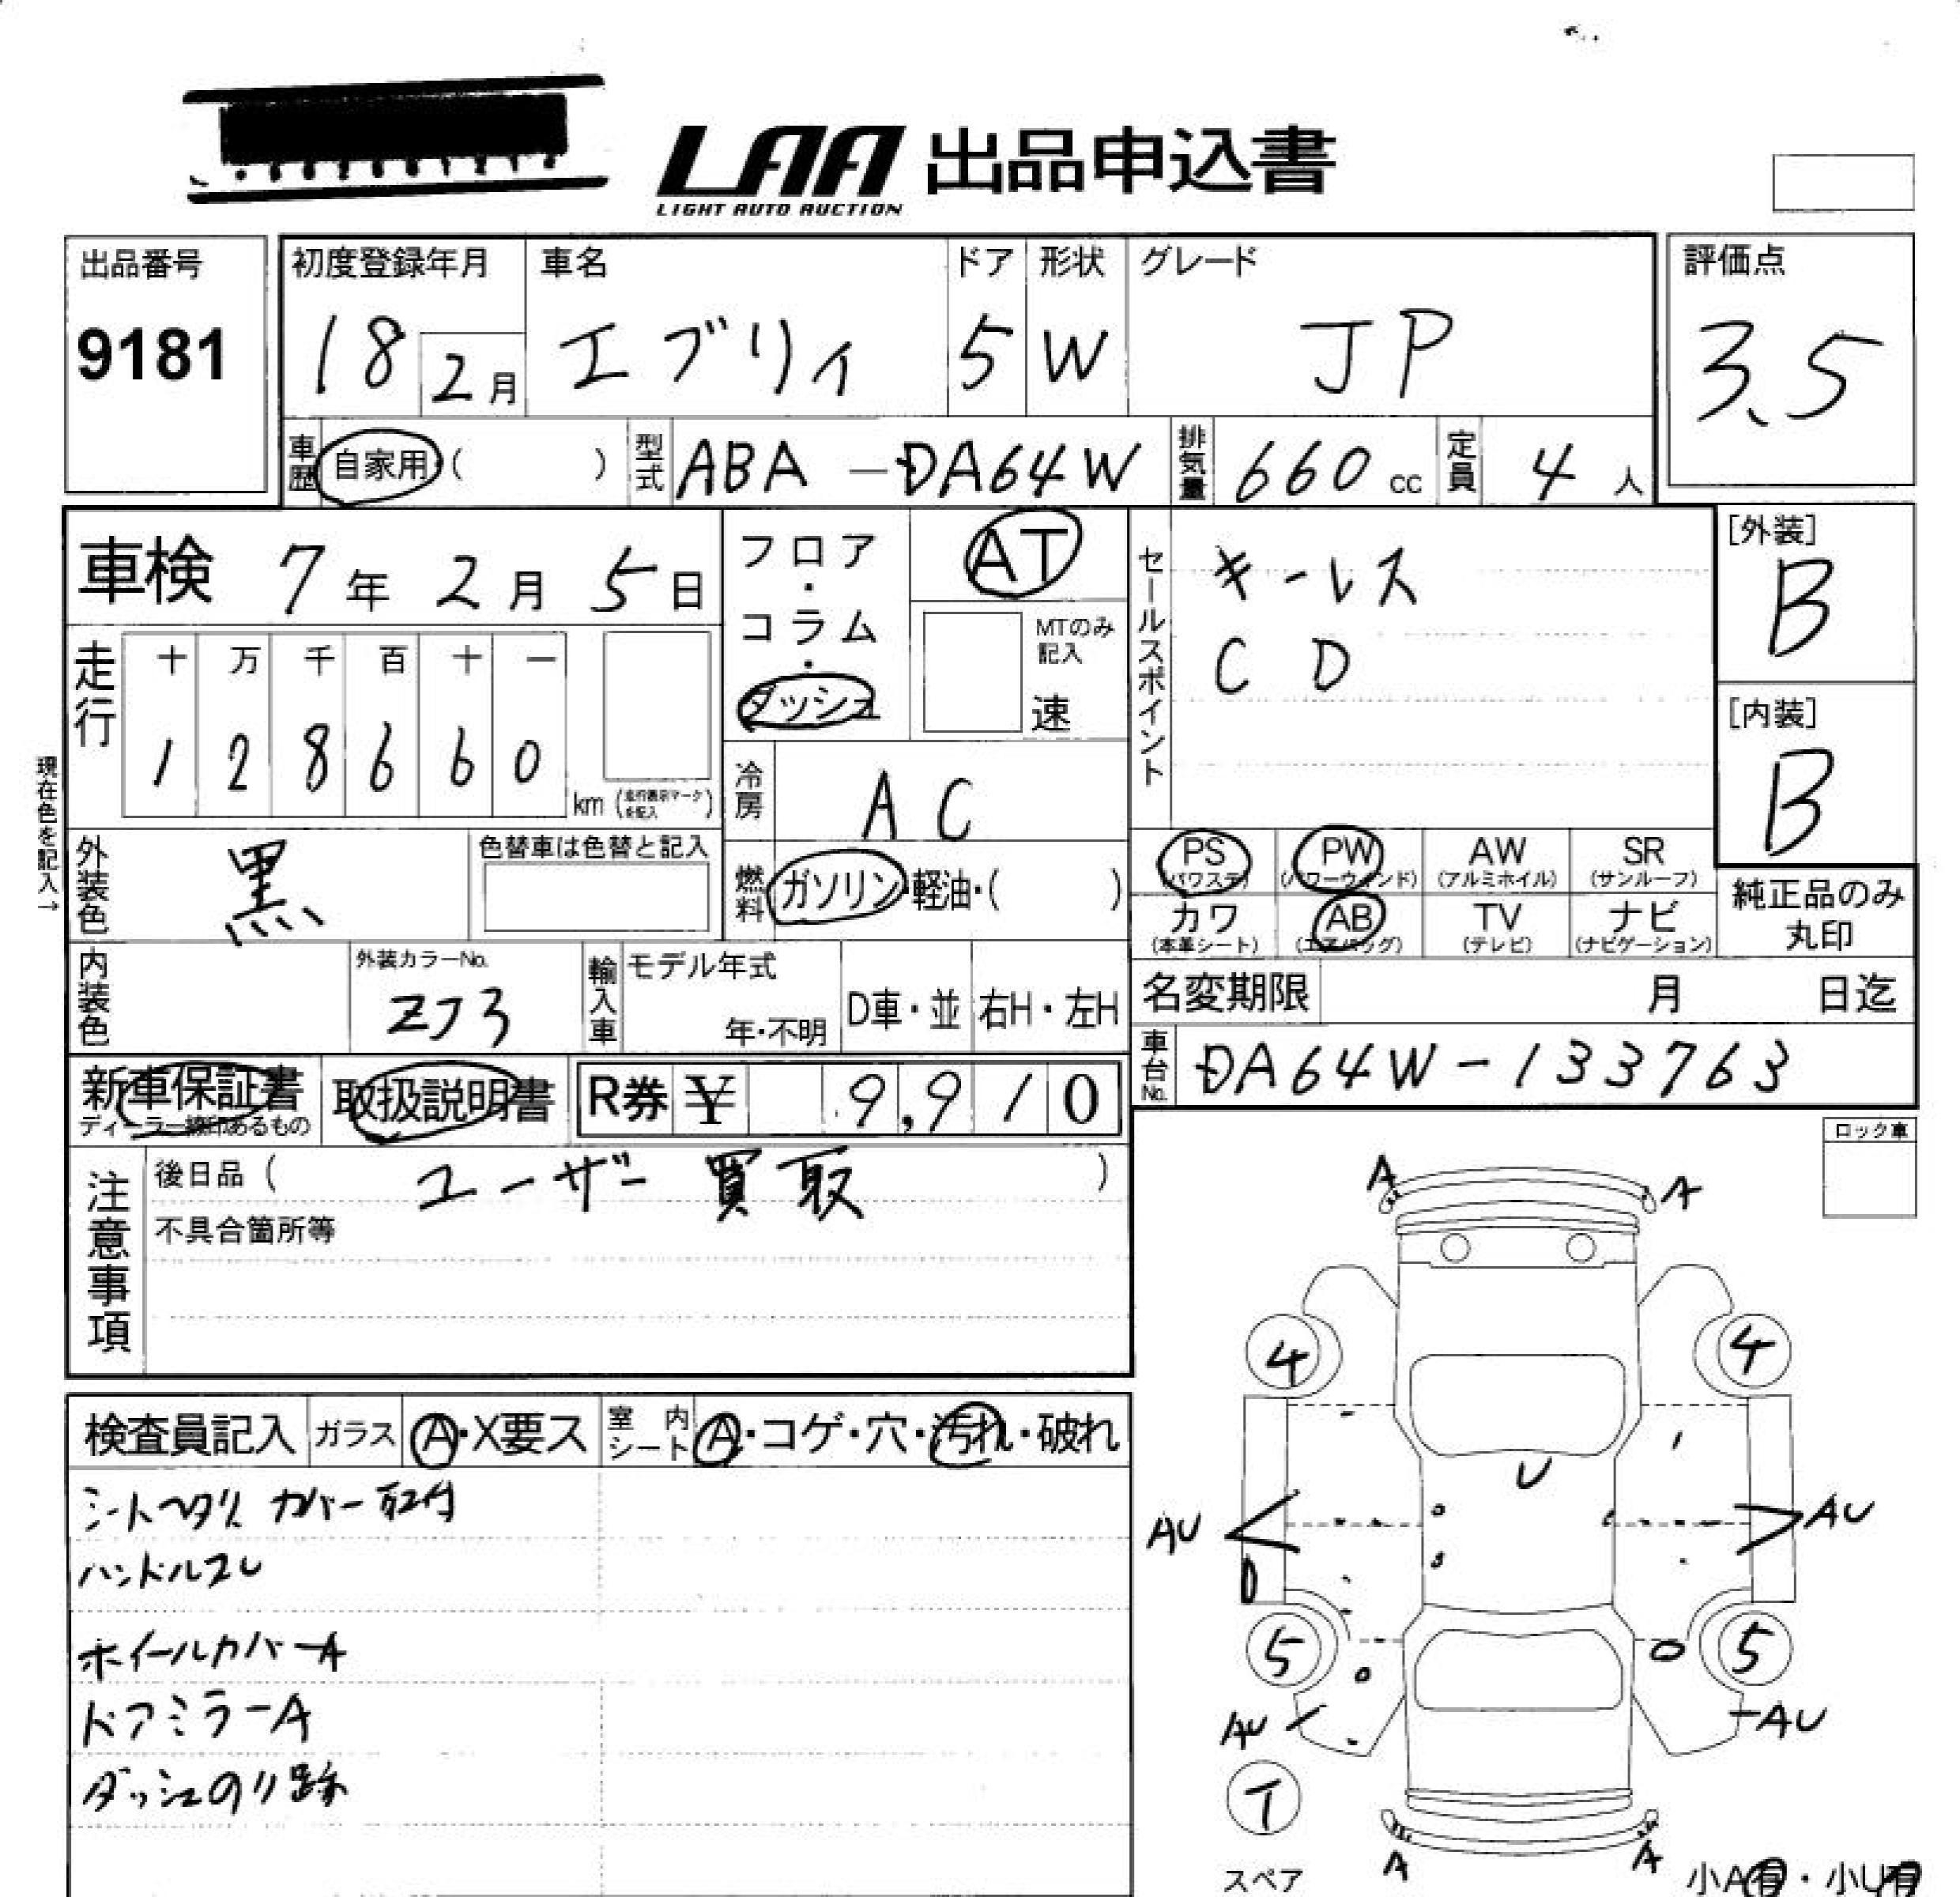 LAA 出品申込書
LIGHT AUTO AUCTION
出品番号
9181
初度登録年月
18 2月
車名
エブリィ
ドア
5
形状
W
グレード
JP
評価点
3.5
車歴 自家用・( )
型式 ABA-DA64W
排気量 660 cc
定員 4 人
車検 7年 2月 5日
フロア・コラム・ダッシュ
AT
MTのみ記入
速
セールスポイント
キーレス
CD
[外装]
B
[内装]
B
走行
十 万 千 百 十 一
1 2 8 6 6 0
km (走行表示マークを記入)
現在色を記入→
冷房 AC
外装色 黒
色替車は色替と記入
燃料 ガソリン・軽油・( )
PS (パワステ) PW (パワーウインド) AW (アルミホイル) SR (サンルーフ)
カワ (本革シート) AB (エアバッグ) TV (テレビ) ナビ (ナビゲーション)
純正品のみ
丸印
内装色
外装カラーNo.
ZJ3
輸入車
モデル年式
年・不明
D車・並
右H・左H
名変期限 月 日迄
車台No. DA64W-133763
新車保証書
ディーラー線印あるもの
取扱説明書
R券 ¥ 9,910
注意事項
後日品( ユーザー買取 )
不具合箇所等
ロック車
A A
4 4
U
AU AU
5 5
AU AU
T
スペア
A A
小A有・小U有
検査員記入 ガラス A・X要ス 室内シート A・コゲ・穴・汚れ・破れ
シートヘタリ カバー取付
ハンドルスレ
ホイールカバーA
ドアミラーA
ダッシュのり跡